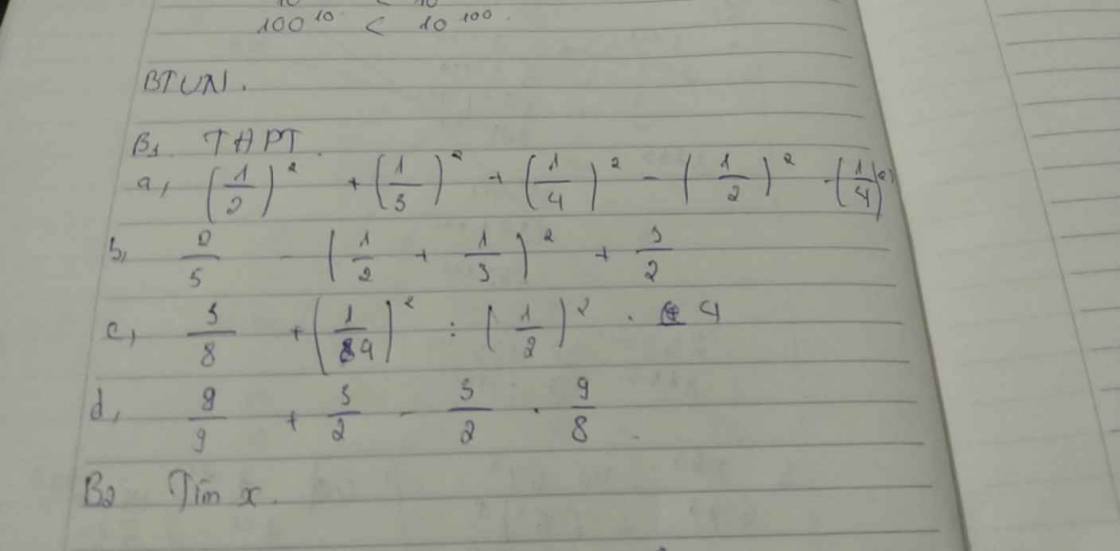 100^10 < 10^100
BTVN.
B1. THPT.
a, (1/2)^2 + (1/3)^2 + (1/4)^2 - (1/2)^2 · (1/4)^2
b, 2/5 - (1/2 + 1/3)^2 + 3/2
c, 3/8 + (1/4)^2 : (1/2)^2 · 4
d, 8/9 + 3/2 - 3/2 · 9/8
B2 Tìm x.